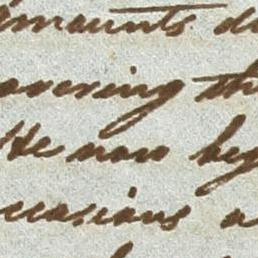 amounts d
overing th
He now beg
ccasions a